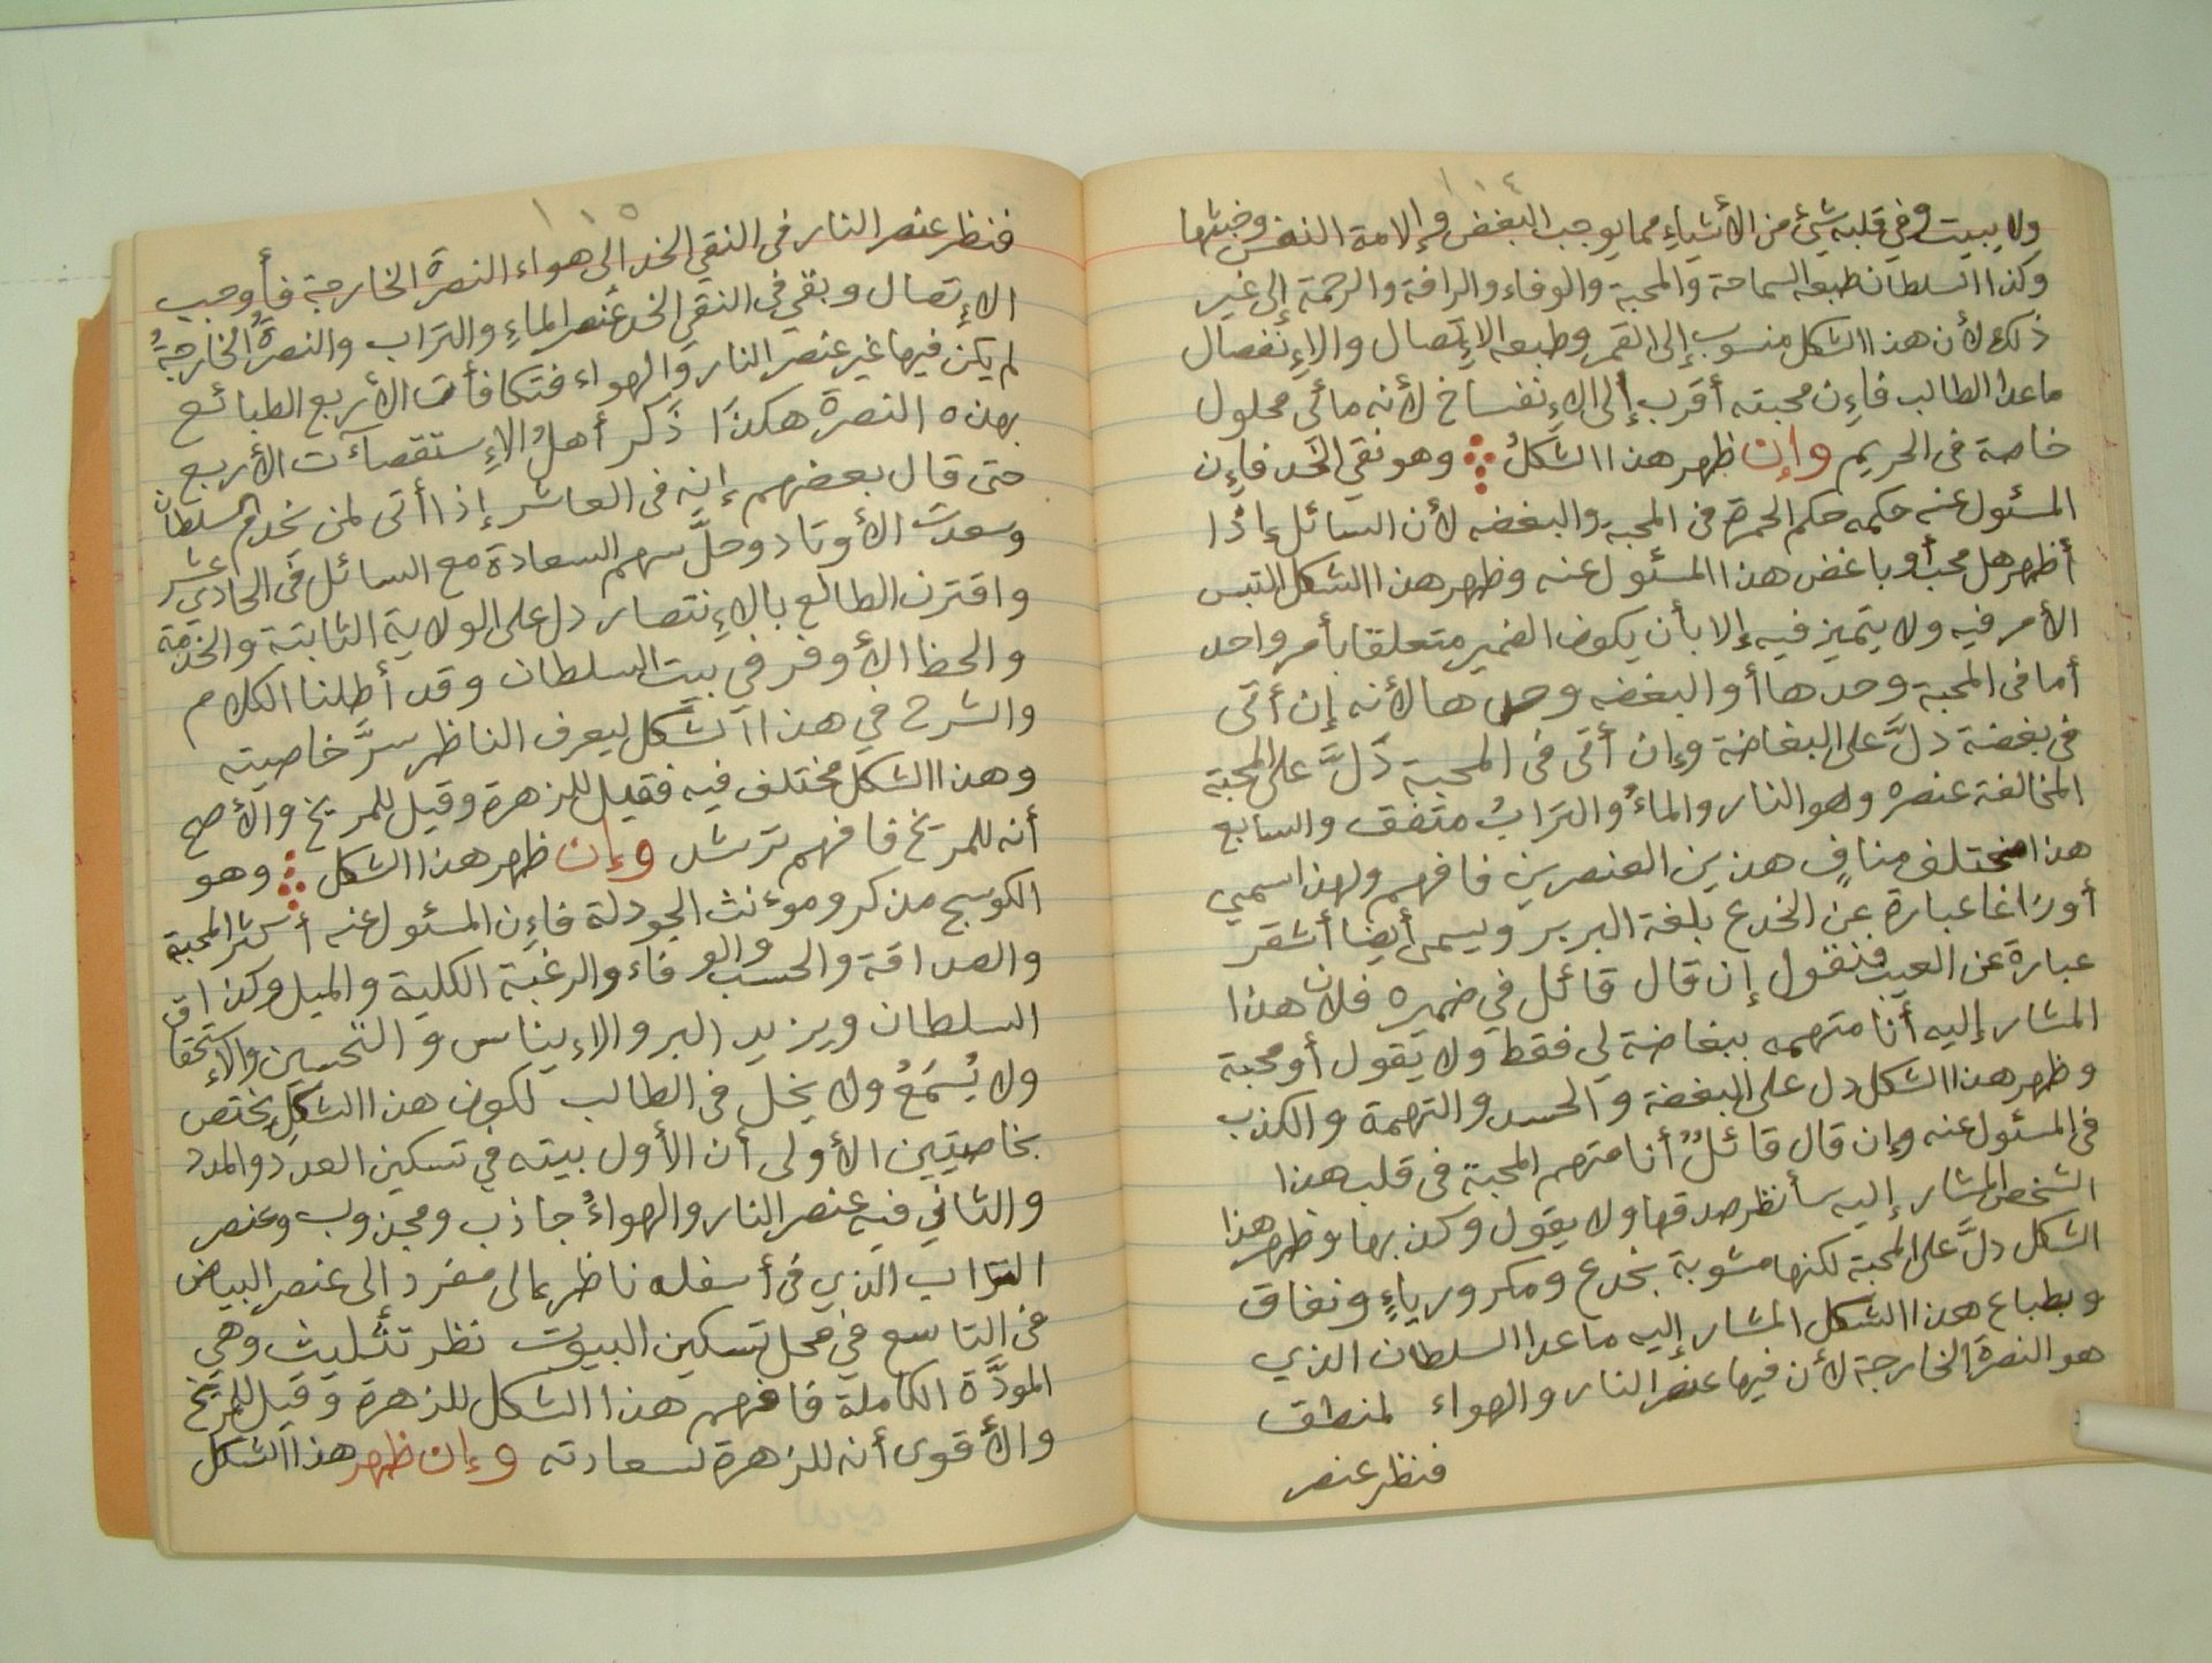 ١١٤
ولا يبيت وفي قلبه شيئ من الأشياء مما يوجب البغض وإلامة النفس وخبثها
وكذا السلطان طبعه السماحة والمحبة والوفاء والرافة والرحمة إلى غير
ذلك لأن هذا الشكل منسوب إلى القمر وطبعه الإتصال والإنفصال
ماعدا الطالب فإن محبته أقرب إلى الإنفساخ لأنه مائي محلول
خاصة فى الحريم وإن ظهر هذا الشكلُ وهو نقي الخد فإن
المسئول عنه حكمه حكم الحمرة فى المحبة والبغضه لأن السائل إذا
أظهر هل محب أو باغض هذا المسئول عنه وظهر هذا الشكل التبس
الأمر فيه ولا يتميز فيه إلا بأن يكون الضمير متعلقا بأمر واحد
أما فى المحبة وحدها أو البغضه وحدها لأنه إن أتى
فى بغضة دلَّ على البغاضة وإن أتى فى المحبة دَلَّ على المحبة
المخالفة عنصره وهو النار والماءُ والترابُ متفق والسابع
هذا مختلف منافٍ هذين العنصرين فافهم ولهذا سمي
أوراغا عبارة عن الخدع بلغة البربر ويسمى أيضا أشقر
عبارة عن العيب فنقول إن قال قائل في ضميره فلان هذا
المشار إليه أنا متهمه ببغاضة لي فقط ولا يقول أو محبة
وظهر هذا الشكل دل على البغضة والحسد والتهمة والكذب
فى المسئول عنه وإن قال قائلٌ أنا متهم المحبة فى قلب هذا
الشخص المشار إليه سأنظر صدقها ولا يقول وكذبها وظهر هذا
الشكل دلَّ على المحبة لكنها مشوبة بخدع ومكر ورياءٍ ونفاق
وبطباع هذا الشكل المشار إليه ماعدا السلطان الذي
هو النصرة الخارجة لأن فيها عنصر النار والهواء لمنطق
فنظر عنصر
١١٥
فنظر عنصر النار فى النقي الخد إلى هواء النصرة الخارجة فأوجب
الإتصال وبقي فى النقي الخد عنصر الماءِ والتراب والنصرةُ الخارجةُ
لم يكن فيها غير عنصر النار والهواء فتكافأت الأربع الطبائع
بهذه النصرة هكذا ذكر أهلُ الإستقصآءت الأربع
حتى قال بعضهم إنه فى العاشر إذا أتى لمن يخدم السلطان
وسعدت الأوتاد وحلَّ سهم السعادة مع السائل في الحادي عشر
واقترن الطالع بالإنتصار دل على الولاية الثابتة والخدمة
والحظ الأوفر في بيت السلطان وقد أطلنا الكلام
والشرح في هذا الشكل ليعرف الناظر سرَّ خاصيته
وهذا الشكل مختلف فيه فقيل للزهرة وقيل للمريخ والأصح
أنه للمريخ فافهم ترشد وإن ظهر هذا الشكل وهو
الكوسج مذكر ومؤنث الجودلة فإن المسئول عنه أكثر المحبة
والصداقة والحسب والوفاء والرغبة الكلية والميل وكذا
السلطان ويزيد البر والإيناس والتحسين والإستحقاق
ولا يُسْمَعُ ولا يخل فى الطالب لكون هذا الشكلِ يختص
بخاصيتين الأولى أن الأول بيته في تسكين العدد والمدد
والثاني فيه عنصر النار والهواءُ جاذب ومجذوب وعنصر
التراب الذي في أسفله ناظر مالى مفرد إلى عنصر البياض
فى التاسع في محل تسكين البيوت نظر تثليث وهي
المودَّة الكاملة فافهم هذا الشكل للزهرة وقيل للمريخ
والأقوى أنه للزهرة لسعادته وإن ظهر هذا الشكل